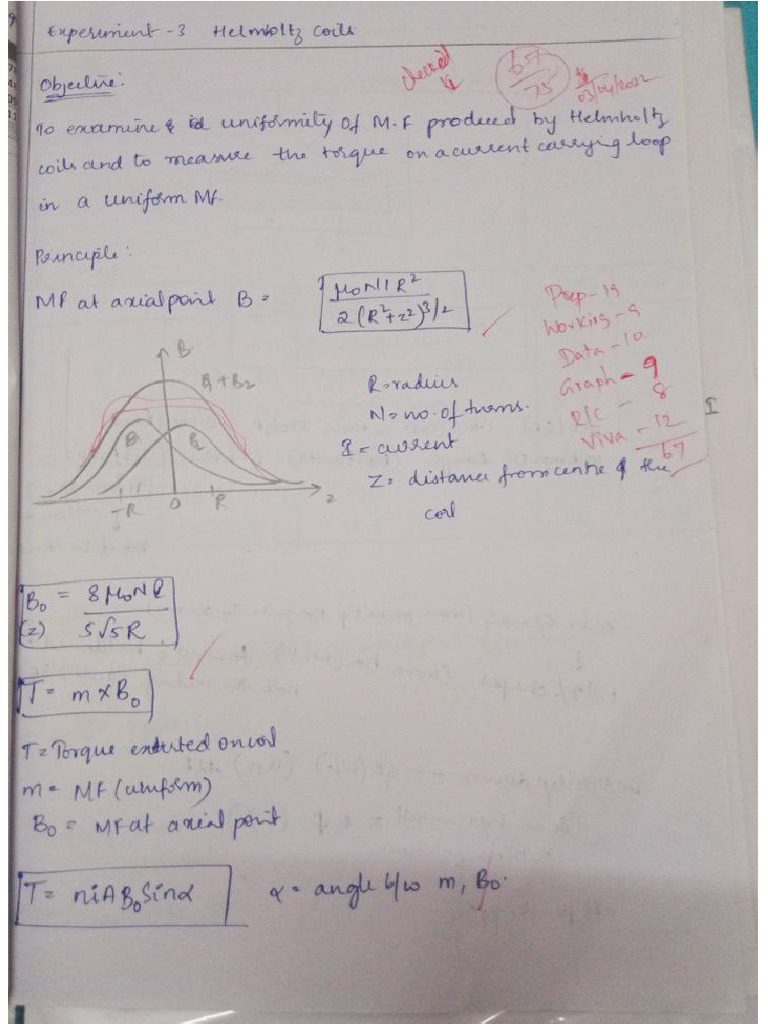 Experiment - 3 Helmholtz coils
checked
67/75
03/04/2022
Objective:
To examine & uniformity of M.F produced by Helmholtz
coils and to measure the torque on a current carrying loop
in a uniform MF.
Principle:
MF at axial point B = μ₀NIR² / 2(R²+z²)^3/2
Prep - 19
Working - 9
Data - 10
Graph - 9
R/C - 8
Viva - 12
67
B
B₁+B₂
B₁
B₂
-R
O
R
z
R = radius
N = no. of turns.
I = current
I
Z = distance from centre of the
coil
B₀ = 8μ₀NI / 5√5R
(z)
T = m × B₀
T = Torque exerted on coil
m = MF (uniform)
B₀ = MF at axial point
T = niAB₀Sinα
α = angle b/w m, B₀.